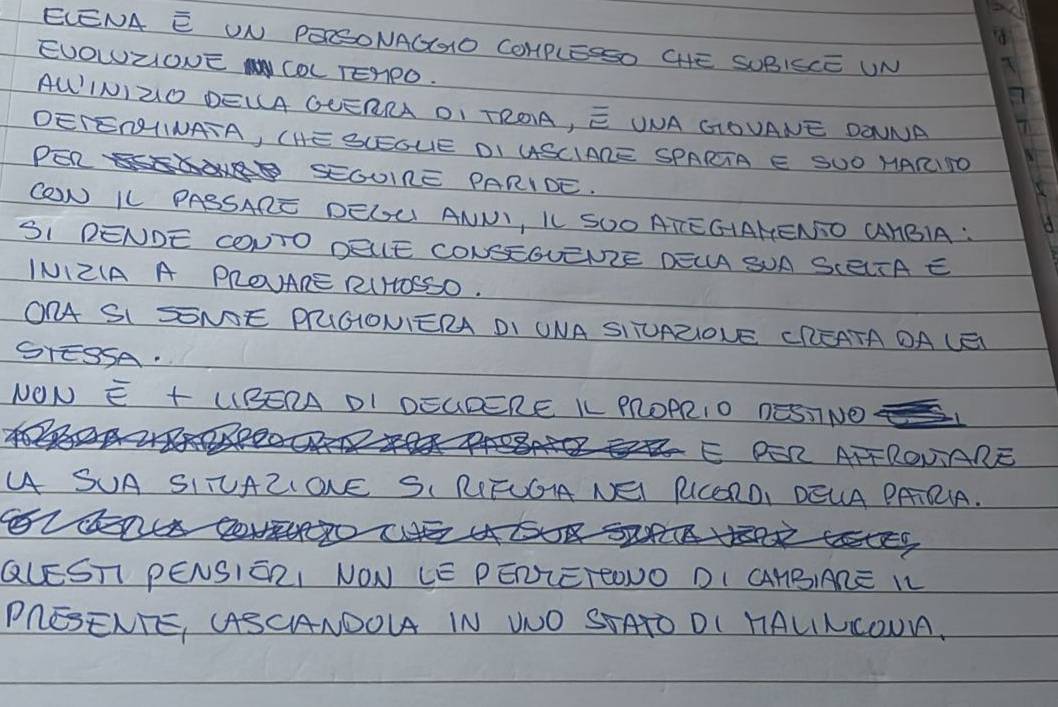 ELENA È UN PERSONAGGIO COMPLESSO CHE SUBISCE UN
EVOLUZIONE COL TEMPO.
ALL'INIZIO DELLA GUERRA DI TROIA, È UNA GIOVANE DONNA
DETERMINATA, CHE SCEGLIE DI LASCIARE SPARTA E SUO MARITO
PER SEGUIRE PARIDE.
CON IL PASSARE DEGLI ANNI, IL SUO ATTEGIAMENTO CAMBIA:
SI RENDE CONTO DELLE CONSEGUENZE DELLA SUA SCELTA E
INIZIA A PROVARE RIMOSSO.
ORA SI SENTE PRIGIONIERA DI UNA SITUAZIONE CREATA DA LEI
STESSA.
NON È + LIBERA DI DECIDERE IL PROPRIO DESTINO
E PER AFFRONTARE
LA SUA SITUAZIONE SI RIFUGIA NEI RICORDI DELLA PATRIA.
QUESTI PENSIERI NON LE PERMETTONO DI CAMBIARE IL
PRESENTE, LASCIANDOLA IN UNO STATO DI MALINCONIA.